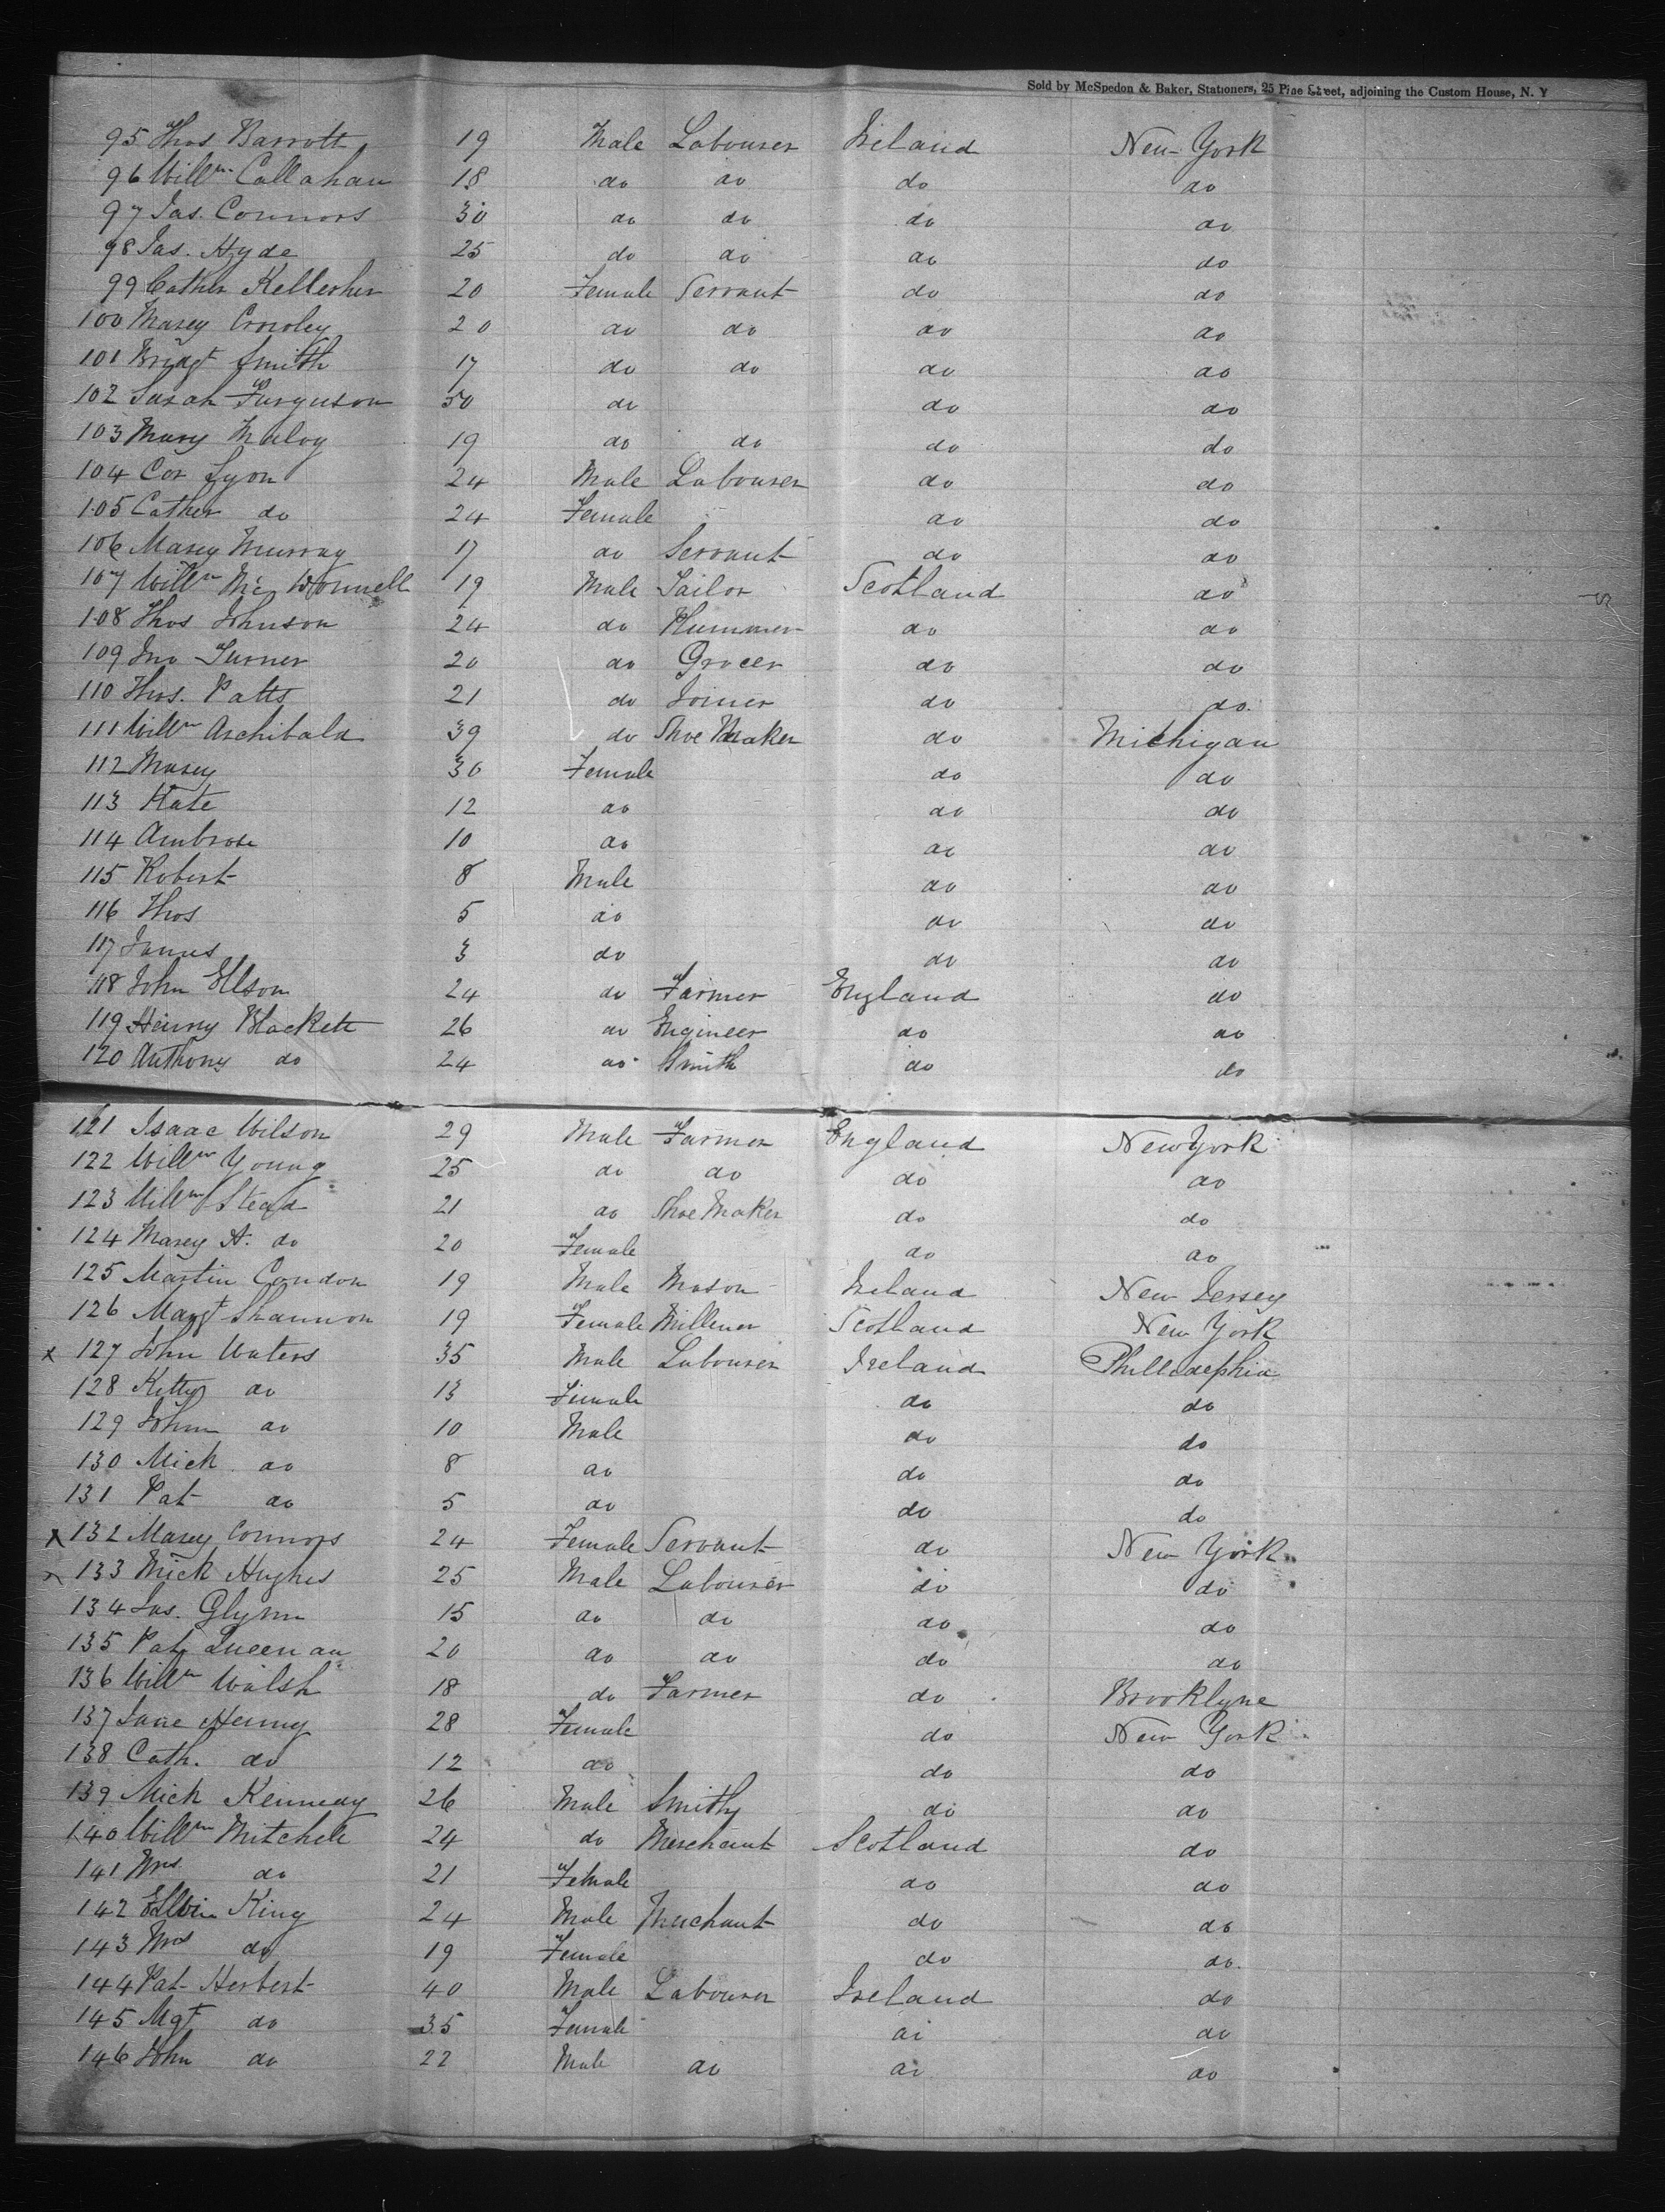 Sold by McSpedon & Baker, Stationers, 25 Pine Street, adjoining the Custom House, N. Y
95 Thos Barrott 19 Male Labourer Ireland New York
96 Willm Callahan 18 do do do do
97 Jas. Connors 30 do do do do
98 Jas. Hyde 25 do do do do
99 Cather Kelleher 20 Female Servant do do
100 Marey Crowley 20 do do do do
101 Bridgt Smith 17 do do do do
102 Sarah Furguson 50 do do do
103 Mary Maloy 19 do do do do
104 Cor Lyon 24 Male Labourer do do
105 Cather do 24 Female do do
106 Marey Murray 17 do Servant do do
107 Willm McDonnell 19 Male Tailor Scotland do
108 Thos Johnson 24 do Plummer do do
109 Jno Turner 20 do Grocer do do
110 Thos. Patts 21 do Joiner do do
111 Willm Archibald 39 do Shoe Maker do Michigan
112 Marey 30 Female do do
113 Kate 12 do do do
114 Ambrose 10 do do do
115 Robert 8 Male do do
116 Thos 5 do do do
117 James 3 do do do
118 John Ellson 24 do Farmer England do
119 Henry Blackett 26 do Engineer do do
120 Anthony do 24 do Smith do do
121 Isaac Wilson 29 Male Farmer England New York
122 Willm Young 25 do do do do
123 Willm Stead 21 do Shoe Maker do do
124 Marey A. do 20 Female do do
125 Martin Condon 19 Male Mason Ireland New Jersey
126 Margt Shannon 19 Female Millener Scotland New York
x 127 John Waters 35 Male Labourer Ireland Philledaephia
128 Kitty do 13 Female do do
129 John do 10 Male do do
130 Mick do 8 do do do
131 Pat do 5 do do do
x 132 Marey Connors 24 Female Servant do New York
x 133 Mick Hughes 25 Male Labourer do do
134 Jas. Glynn 15 do do do do
135 Pat Queenan 20 do do do do
136 Willm Walsh 18 do Farmer do Brooklyne
137 Jane Henny 28 Female do New York
138 Cath. do 12 do do do
139 Mick Kennedy 26 Male Smithy do do
140 Willm Mitchele 24 do Merchant Scotland do
141 Mrs do 21 Female do do
142 King 24 Male Merchant do do
143 Mrs do 19 Female do do
144 Pat Herbert 40 Male Labourer Ireland do
145 Mgt do 35 Female do do
146 John do 22 Male do do do